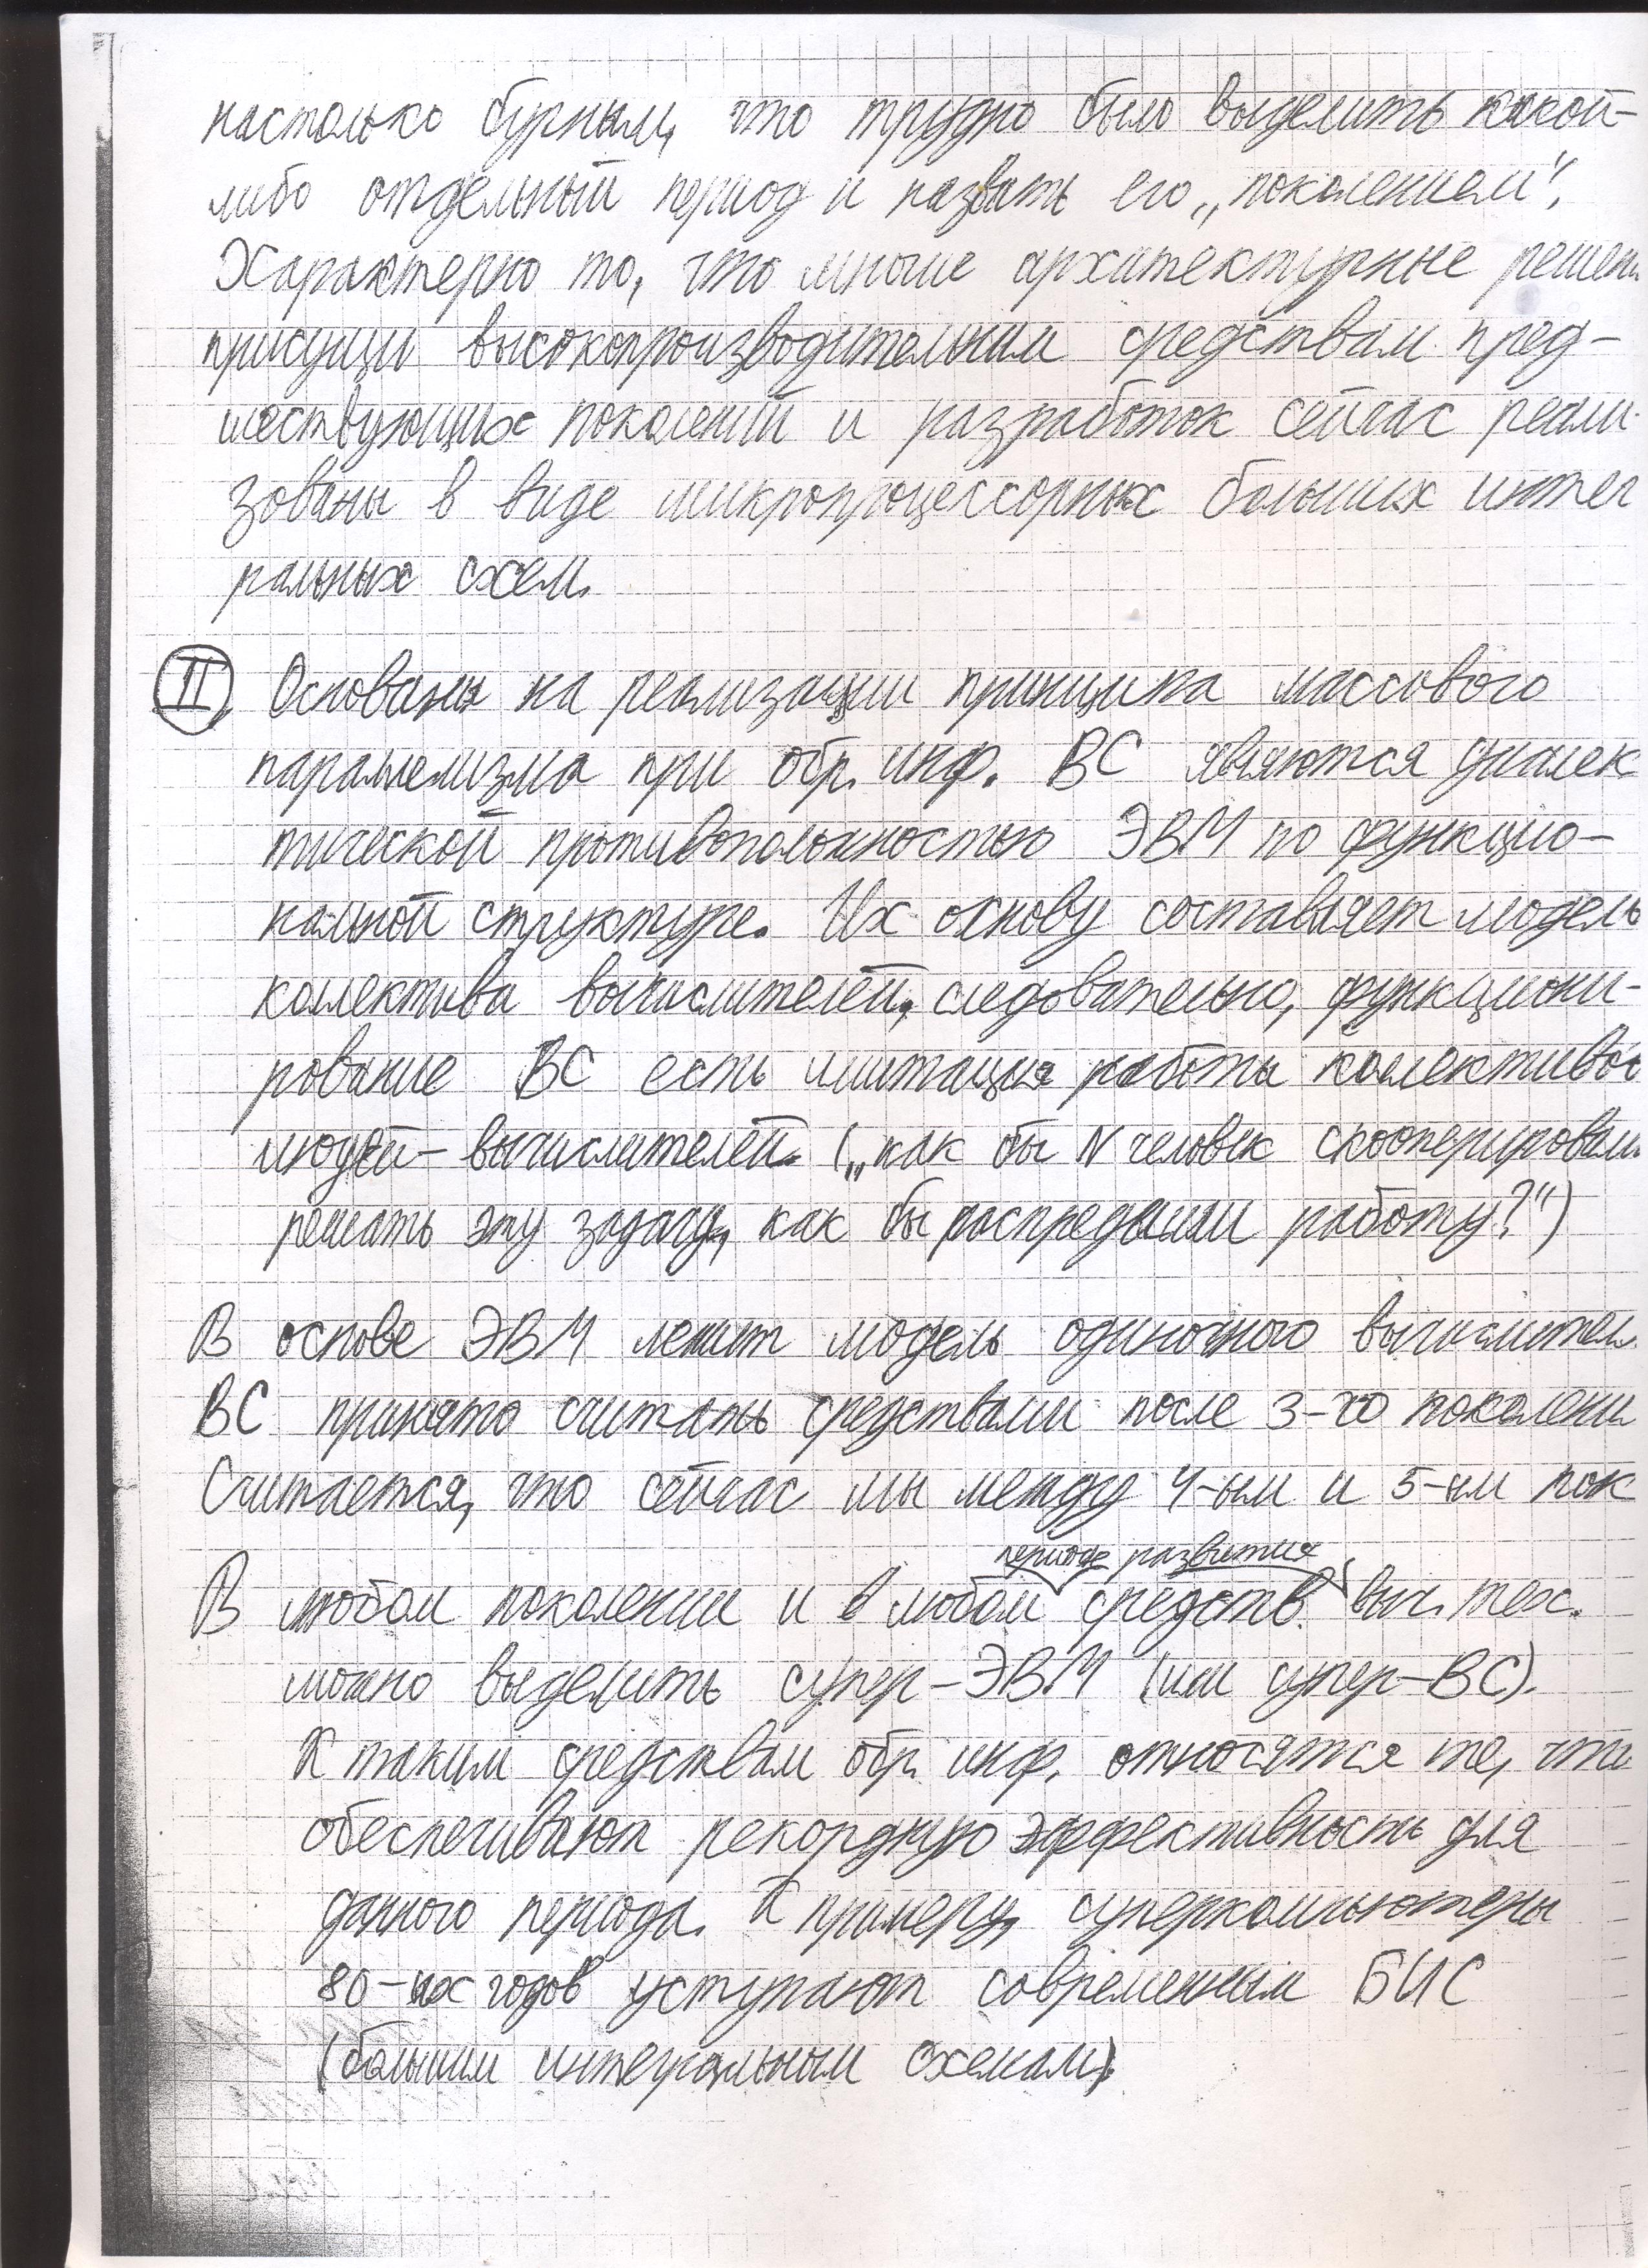 настолько бурным, что трудно было выделить какой-
либо отдельный период и назвать его „поколением“.
Характерно то, что многие архитектурные решен
присущи высокопроизводительным средствам пред-
шествующих поколений и разработок сейчас реали-
зованы в виде микропроцессорных больших интег
ральных схем.
II Основаны на реализации принципа массового
параллелизма при обр. инф. ВС являются диалек
тической противоположностью ЭВМ по функцио-
нальной структуре. Их основу составляет модель
коллектива вычислителей, следовательно, функциони-
рование ВС есть имитация работы коллективов
людей-вычислителей. („как бы N человек скооперировали
решать эту задачу, как бы распределили работу?“)
В основе ЭВМ лежит модель одиночного вычислител
ВС принято считать средствами после 3-го поколени
Считается, что сейчас мы между 4-ым и 5-ым пок
периоде развития
В любом поколении и в любом средств выч. тех.
можно выделить супер-ЭВМ (или супер-ВС).
К таким средствам обр. инф. относятся те, что
обеспечивают рекордную эффективность для
данного периода. К примеру, суперкомпьютеры
80-ых годов уступают современным БИС
(большим интегральным схемам).